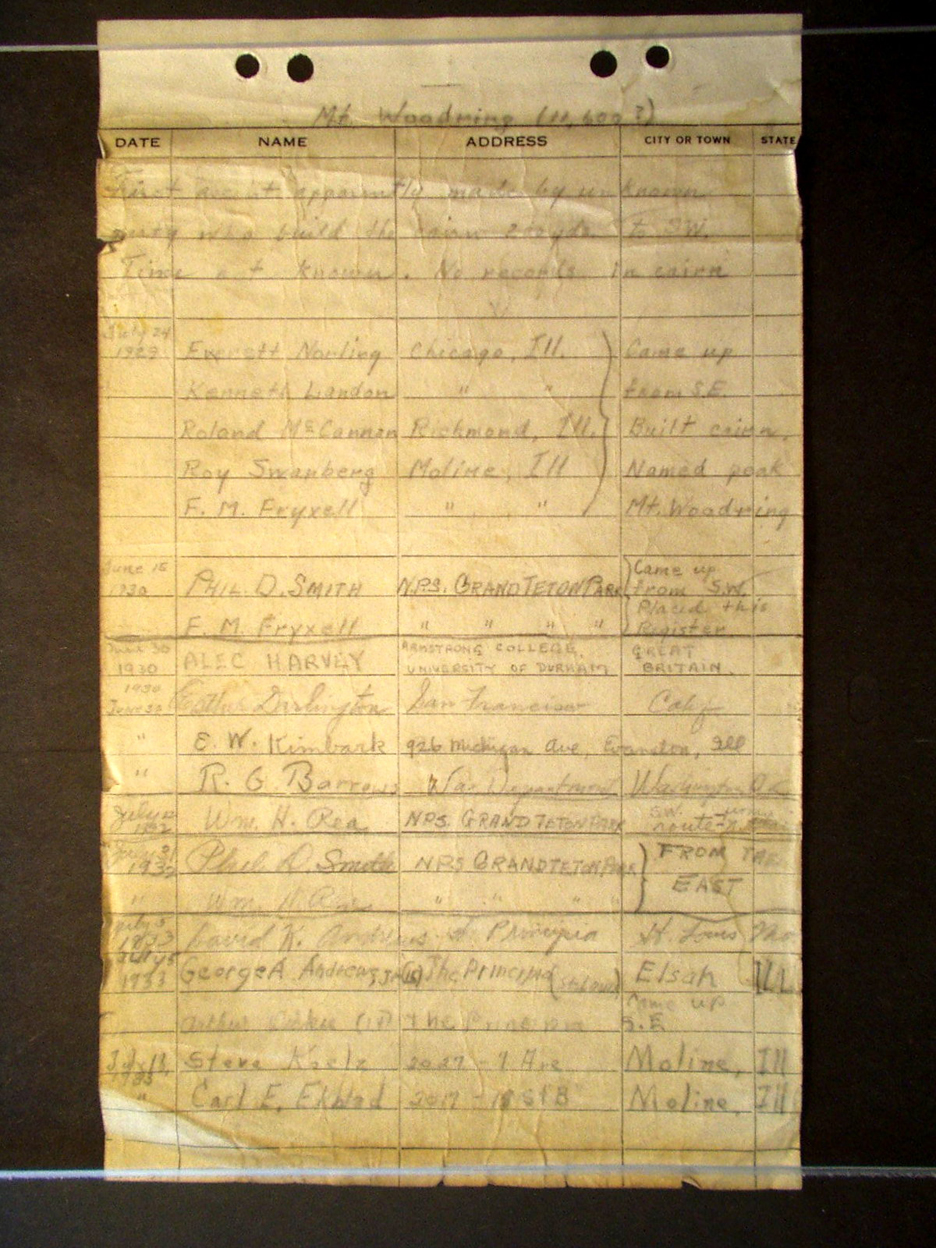 Mt. Woodring (11,600?)
DATE NAME ADDRESS CITY OR TOWN STATE
First ascent apparently made by unknown
party who build the cairn 2 to yds. to S.W.
Time not known. No records in cairn
July 24
1929 Everett Norling Chicago, Ill. Came up
Kenneth Landon " " from S.E.
Roland McCannon Richmond, Ill. Built cairn.
Roy Swanberg Moline, Ill Named peak
F. M. Fryxell " " Mt. Woodring
June 15 Came up
1930 PHIL D. SMITH N.P.S. GRAND TETON PARK from S.W.
Placed this
F. M. Fryxell " " " " Register
June 30 ARMSTRONG COLLEGE, GREAT
1930 ALEC HARVEY UNIVERSITY OF DURHAM BRITAIN.
1930
June 30 Esther Darlington San Francisco Calif
" E. W. Kimbark 926 Michigan Ave, Evanston, Ill
" R. G. Barrows War Department Washington D.C.
July Wm. H. Rea NPS. GRAND TETON PARK SW. route
1932 Phil D. Smith NPS GRAND TETON PARK FROM THE
" Wm. H. Rea " " " " EAST
July 5
1933 David K. Andrews Principia St. Louis Mo
July 5
1933 George A Andrews, Jr. The Principia (St Louis) Elsah ILL.
Came up
Arthur (17) The Principia S.E
July 18, Steve 2027 - 9 Ave Moline, Ill
" Carl E. Ekblad 2017 - 18 St B Moline, Ill